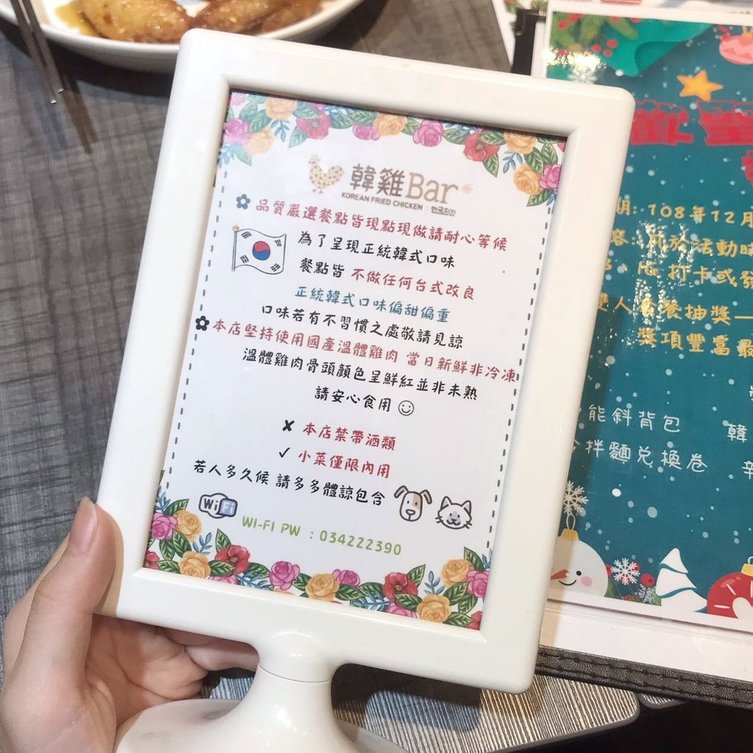 韓雞Bar
KOREAN FRIED CHICKEN · 한국치킨
品質嚴選餐點皆現點現做請耐心等候
為了呈現正統韓式口味
餐點皆 不做任何台式改良
正統韓式口味偏甜偏重
口味若有不習慣之處敬請見諒
本店堅持使用國產溫體雞肉 當日新鮮非冷凍
溫體雞肉骨頭顏色呈鮮紅並非未熟
請安心食用
✘ 本店禁帶酒類
✓ 小菜僅限內用
若人多久候 請多多體諒包含
WiFi
WI-FI PW : 034222390
期: 108年12月
打卡或
雙人套餐抽獎
獎項豐富
能斜背包 韓
拌麵兌換卷